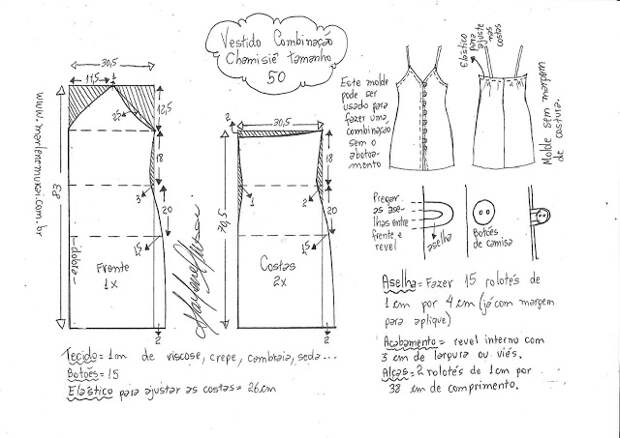 Vestido Combinação
Chamisiê Tamanho
50
30,5
11,5
12,5
25
18
3
20
1,5
83
dobra
Frente
1x
2
www.marlenemukai.com.br
2
30,5
18
1
2
20
1,5
70,5
Costas
2x
2
Este molde
pode ser
usado para
fazer uma
combinação
sem o
abotoa-
mento
Elástico
para
ajuste
nas
costas
Molde sem margem
de costura.
Pregar
as ase-
lhas entre
frente e
revel
aselha
Botões
de camisa
Aselha = Fazer 15 rolotês de
1 cm por 4 cm (já com margem
para aplique)
Acabamento = revel interno com
3 cm de largura ou viés.
Alças = 2 rolotês de 1 cm por
38 cm de comprimento.
Tecido = 1m de viscose, crepe, cambraia, seda...
Botões = 15
Elástico para ajustar as costas = 26 cm